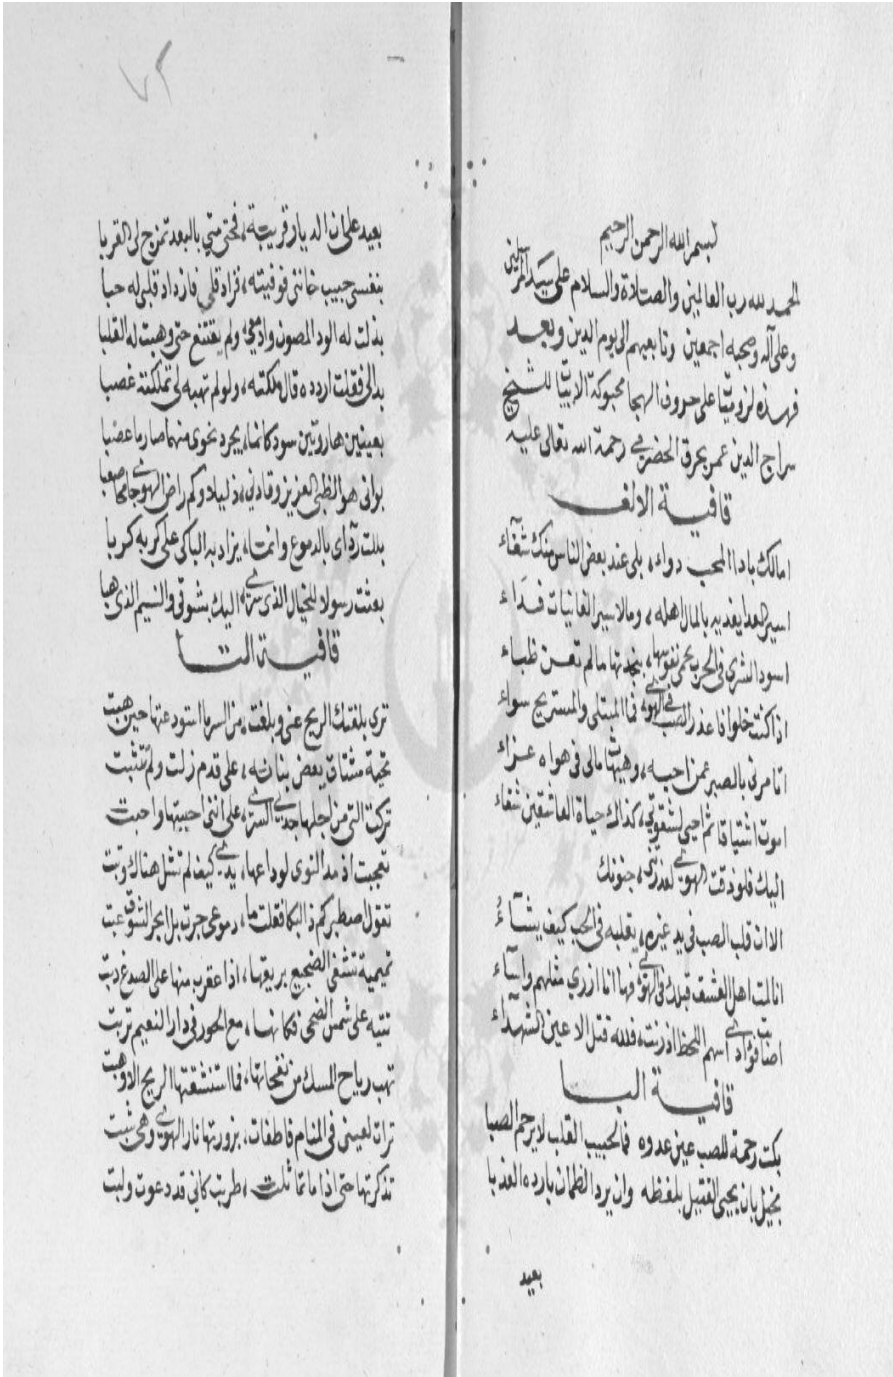 بسم الله الرحمن الرحيم
الحمد لله رب العالمين والصلاة والسلام على سيد المرسلين
وعلى آله وصحبه اجمعين وتابعيهم الى يوم الدين وبعد
فهذه لزوميّات على حروف الهجا محبوكة الابيات للشيخ
سراج الدين عمر بحرق الحضرمي رحمة الله تعالى عليه
قافية الالف
امالك يا داا لمحب دواء، بلى عند بعض الناس منك شفآء
اسير العدا يفديه بالمال اهله، وما لاسير الغانيات فداء
اسود الشرى في الحرب تحمى نفوسها، بنجدتها ما لم تعن ظباء
اذا كنت خلوا فاعذر الصب في الهوى، فما المبتلى والمستريح سواء
اتامرني بالصبر عمن احبه، وهيهات مالى في هواه عزاء
اموت اشتياقا ثم احيى لشقوتي، كذاك حياة العاشقين شقاء
اليك فلو ذقت الهوى لعذرتنى، جنونك
الا ان قلب الصب في يد غيره، يقلبه في الحب كيف يشآء
انا لمت اهل العشق قبلك في الهوى، وها انا ازري مثلهم واسآء
اصابت فؤادي اسهم اللحظ اذ رنت، فلله قتل الاعين الشهدآء
قافية البا
بكت رحمة للصب عين عدوه فما لحبيب القلب لا يرحم الصبا
بخيل بان يحيى القتيل بلفظه وان يرد الظمان بارده العذبا
بعيد
٧٢
بعيد على ان الديار قريبة، فحتى متي بالبعد تمزج لى القربا
بنفسى حبيب خانني فوفيته، فزاد قلى فازداد قلبى له حبا
بذلت له الود المصون وادمعي، ولم يقتنع حتى وهبت له القلبا
بدالى فقلت اردده قال ملكته، ولو لم تهبه لى تملكته غصبا
بعينين هاروتين سود كانما، يجرد نحوى منهما صارما عضبا
براني هوالظبي العزيز وقادني، ذليلا وكم راض الهوى جامحا صعبا
بللت ردآى بالدموع وانما، يزاد به الباكى على كربه كربا
بعثت رسولا للخيال الذى سرى، اليك بشوقى والنسيم الذى هبا
قافية التا
ترى بلغتك الريح عنى وبلغت، من السر ما استودعتها حين هبت
تحية مشتاق يعض بنانه، على قدم زلت ولم تتثبت
تركت التى من اجلها جدبي السرى، على انني احببتها واحبت
تعجبت اذ مد النوى لوداعها، يدي كيف لم تشل هناك وتبت
تقول اصطبر كم ذا البكا فقلت ما، دموعى جرت بل ابحر الشوق عبت
تميمية تشفى الضجيع بريقها، اذا عقرب منها على الصدغ دبت
تتيه على شمس الضحى فكانها، مع الحور في دار النعيم تربت
تهب رياح المسك من نفحاتها، فما استنشقتها الريح الا وهبت
تراءت لعيني في المنام فاطفات، بزورتها نار الهوى وهي شبت
تذكرتها حتى اذا ما تماثلت، طربت كاني قد دعوت ولبت